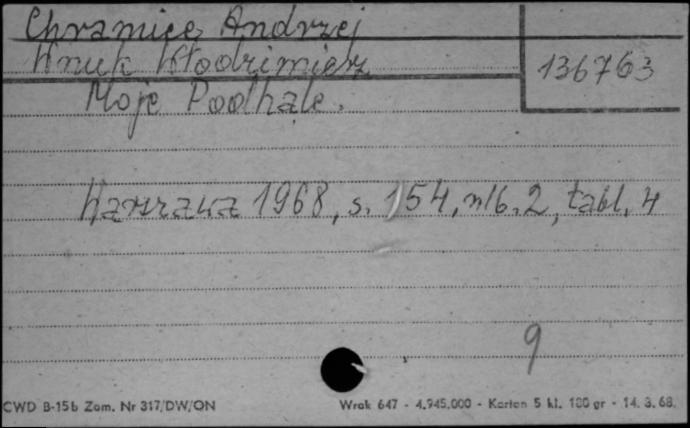 Chramiec Andrzej
Wnuk Włodzimierz
136763
Moje Podhale.
Warszawa 1968, s. 154, nlb. 2, tabl. 4
9
CWD B-15b Zam. Nr 317/DW/ON
Wrak 647 - 4.945.000 - Karton 5 kl. 180 gr - 14. 3. 68.